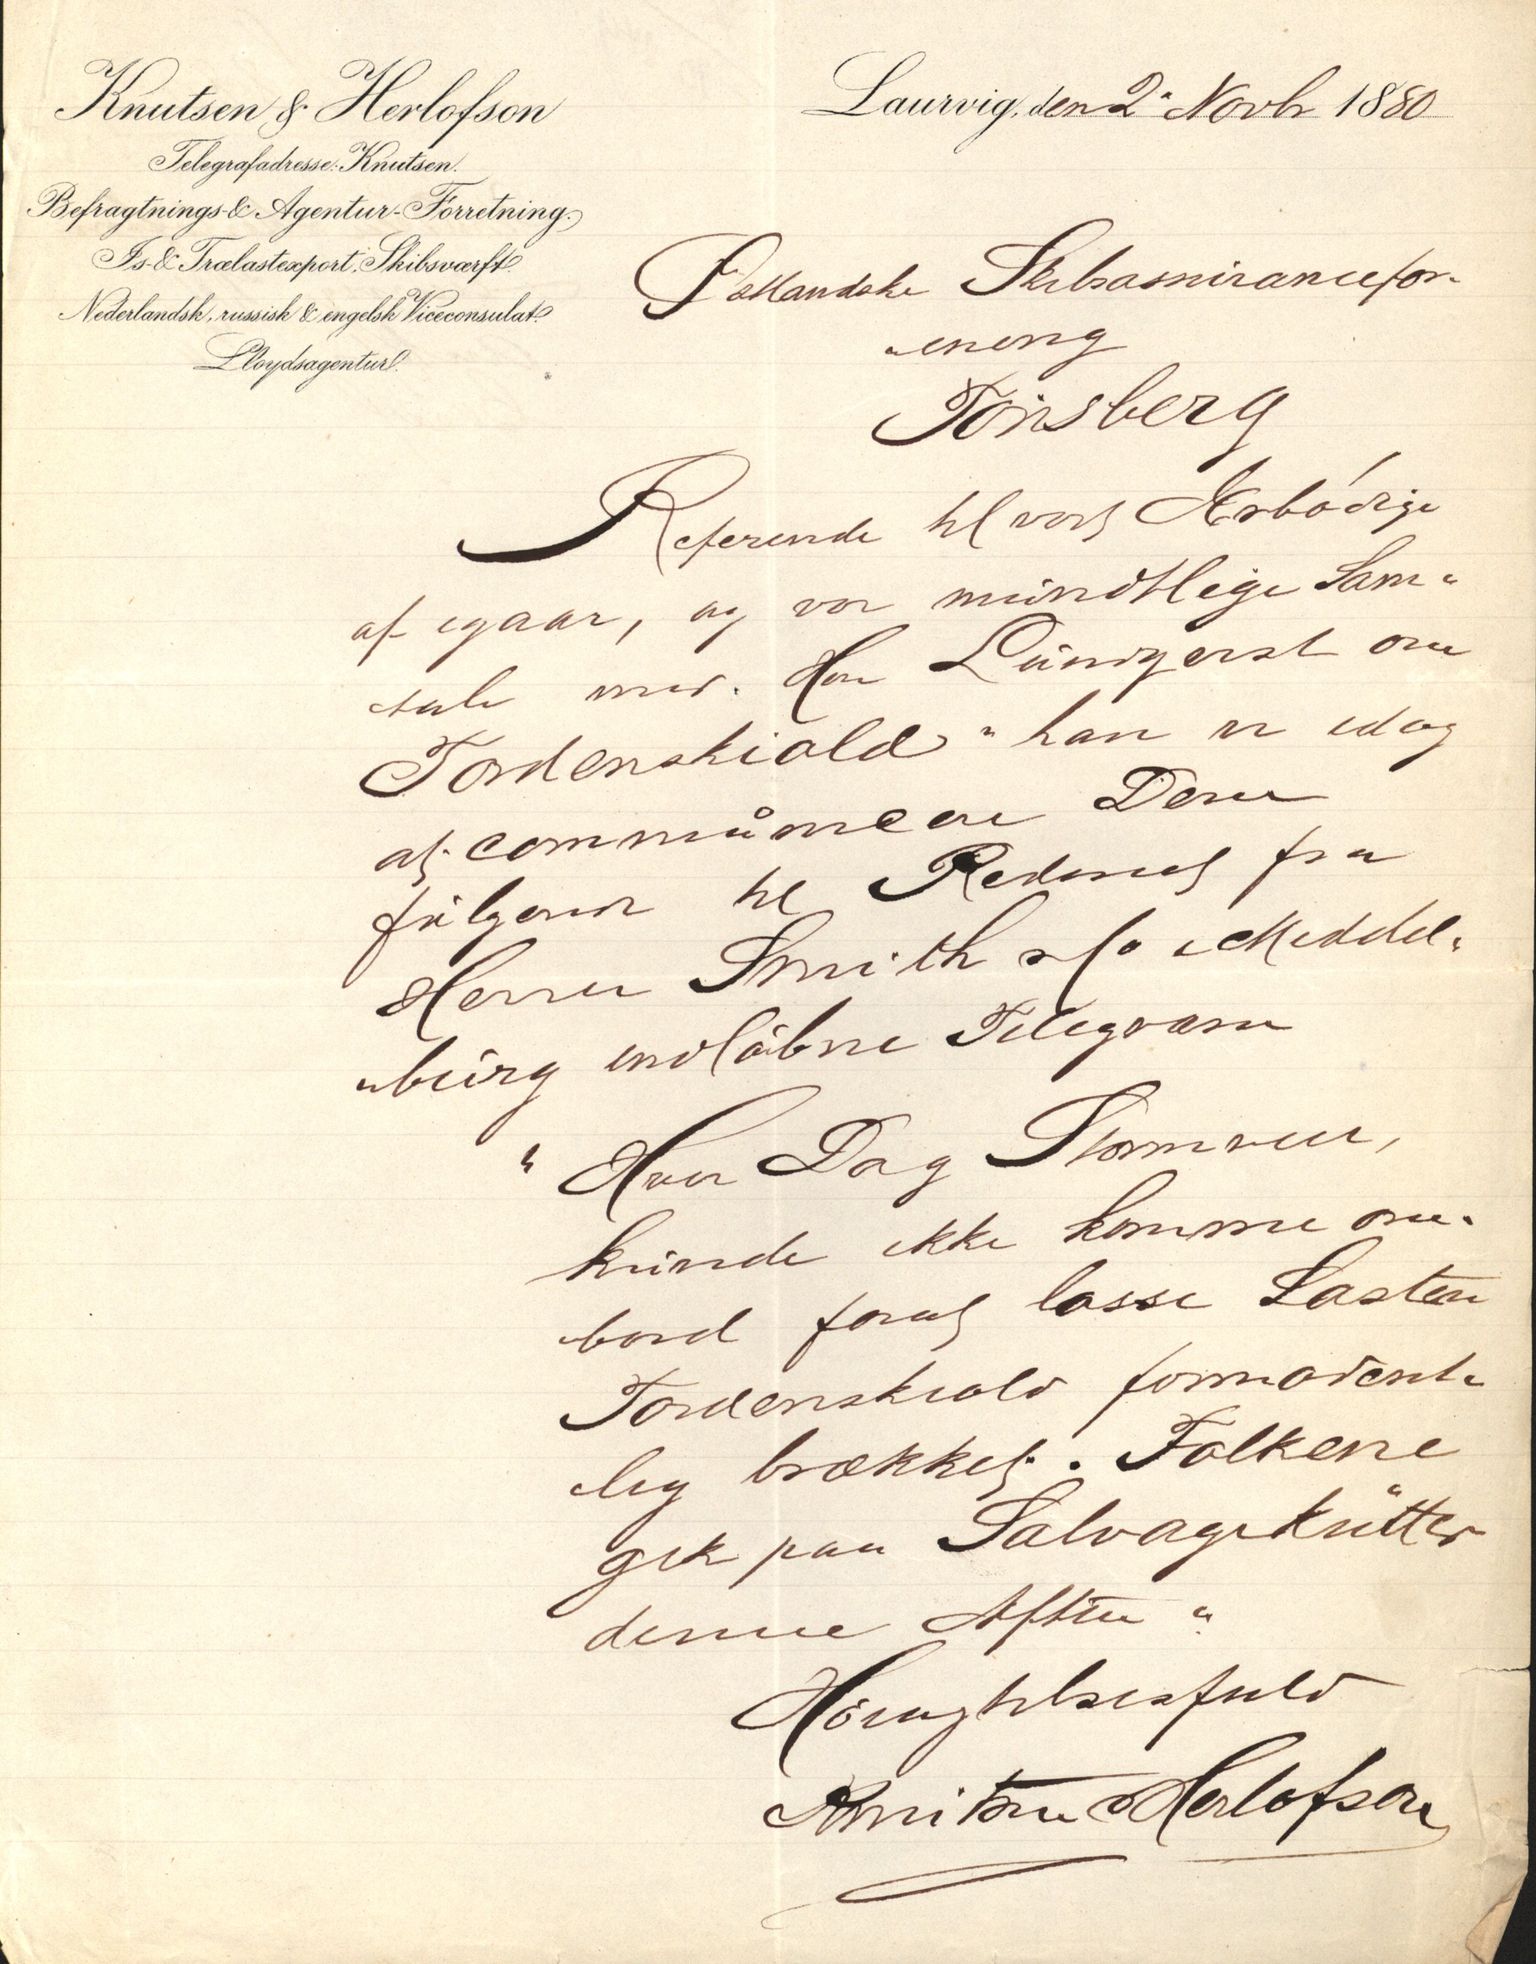 Knutsen & Herlofson
Telegrafadresse: Knutsen.
Befragtnings- & Agentur-Forretning.
Is- & Trælastexport, Skibsværft.
Nederlandsk, russisk & engelsk Viceconsulat.
Lloydsagentur.
Laurvig, den 2' Novbr 1880
Østlandske Skibsassurancefor-
-ening
Tönsberg
Referende til vort Ærbödige
af igaar, og vor mündtlige Sam-
tale med Herr Lündqvist om
"Tordenskiold" kan vi idag
at communicere Dem
fölgende til Rederiet fra
Herrer Smith & Co i Middel-
-bürg indlöbne Telegram
"Hver Dag Stormveir,
künde ikke komme om-
bord forat losse Lasten
Tordenskiold formodent-
lig brækket. Folkene
gik paa Salvagekütter
denne Aften"
Höiagtelsesfuld
Knutsen & Herlofson